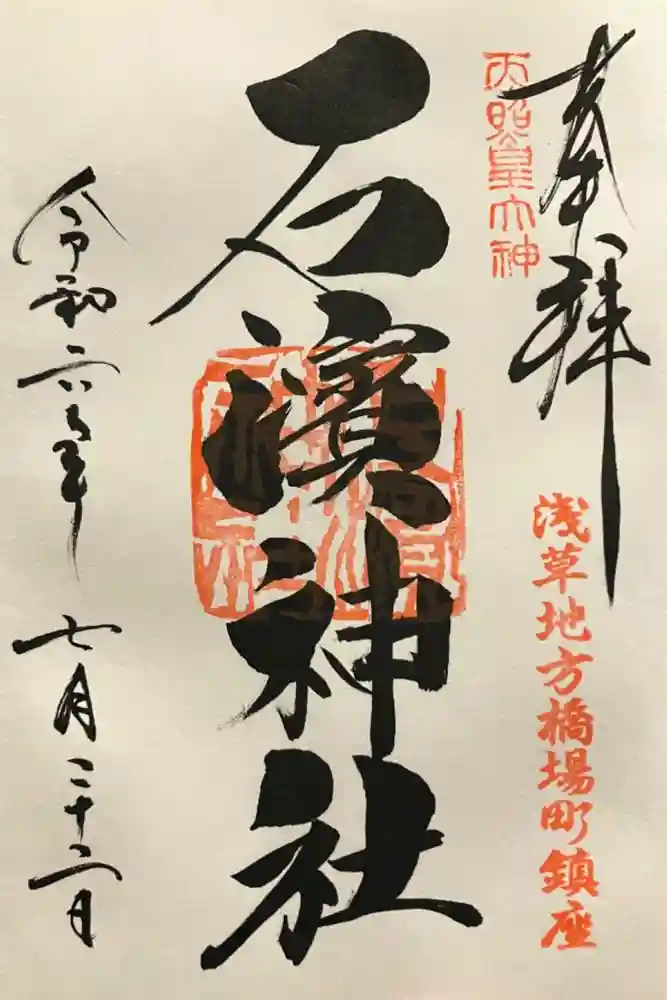 奉拝
天照皇大神
浅草地方橋場町鎮座
石濱神社
令和六年
七月二十二日